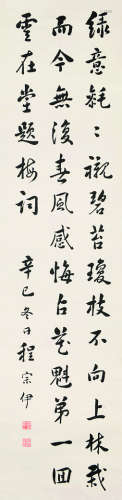 綠意毿〻襯碧苔瓊枝不向上林栽
而今無復春風感悔占花魁第一回
雲在堂題梅詞 辛巳冬日程宗伊